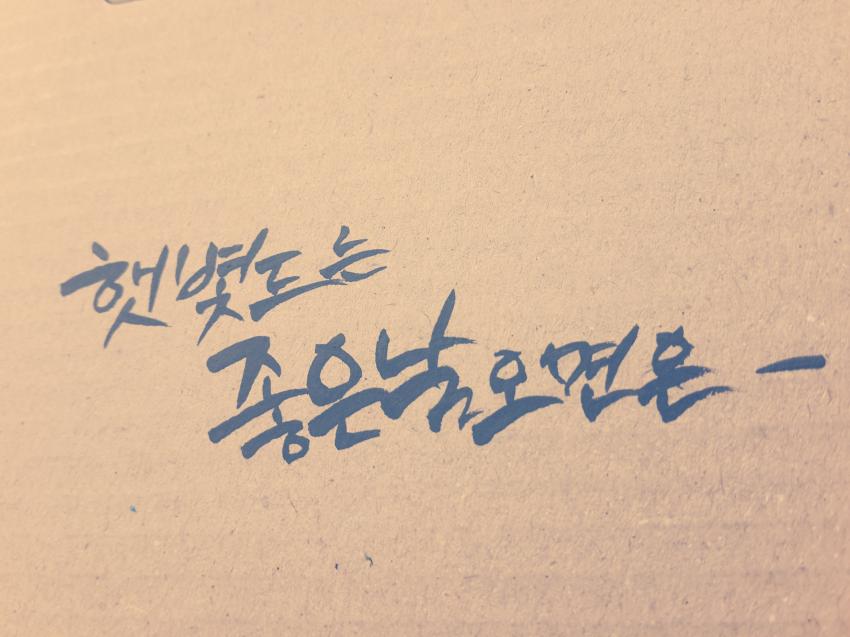 햇볓드는
좋은날오면은 -